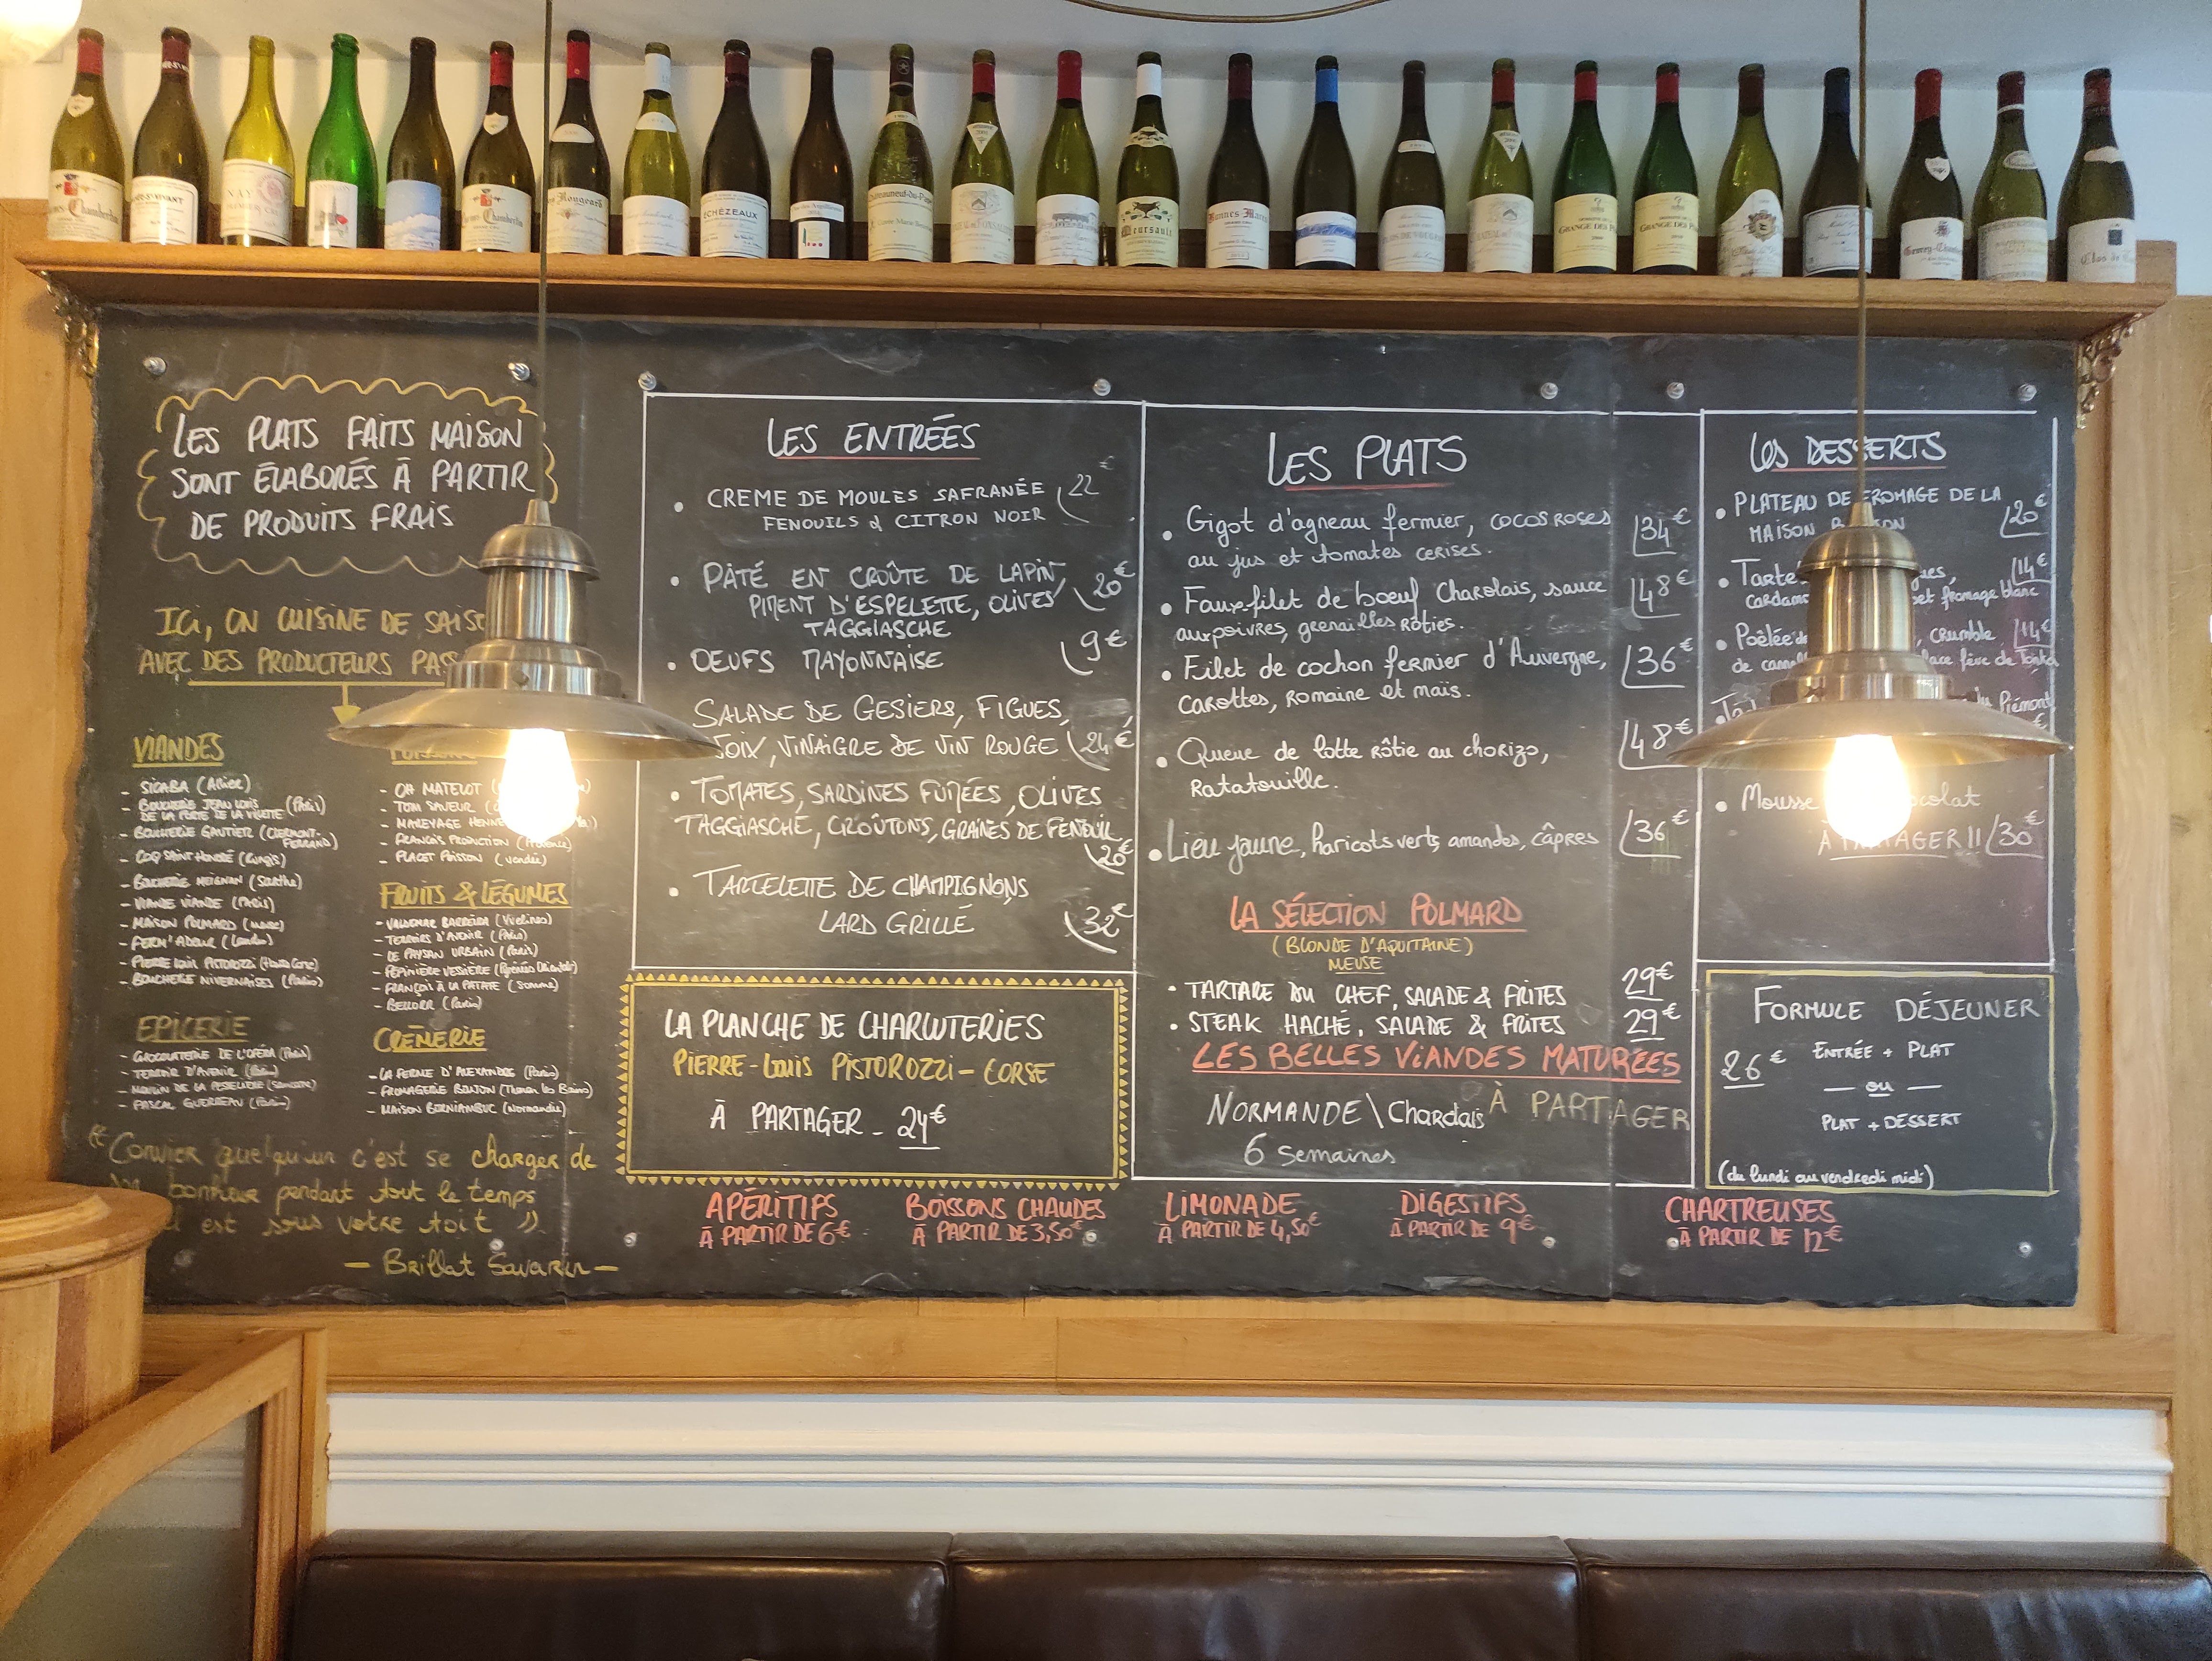 ECHEZEAUX
Meursault
LES PLATS FAITS MAISON
SONT ÉLABORÉS À PARTIR
DE PRODUITS FRAIS
ICI, ON CUISINE DE
AVEC DES PRODUCTEURS
VIANDES
- SICABA (Allier)
- BOUCHERIE JEAN LOUIS (Paris)
DE LA PORTE DE LA VILLETTE
- BOUCHERIE GAUTIER (CLERMONT-
FERRAND)
- COQ SAINT HONORÉ (Rungis)
- BOUCHERIE MEIGNAN (Sarthe)
- VIANDE VIANDE (PARIS)
- MAISON POLMARD (MEUSE)
- FERM'ADOUR (Landes)
- PIERRE LOUIS PISTOROZZI (Haute Corse)
- BOUCHERIE NIVERNAISES (Paris)
EPICERIE
- CHOCOLATERIE DE L'OPÉRA (Paris)
- TERROIR D'AVENIR (Paris)
- PASCAL GUERREAU (Paris)
- OH MATELOT
- TOM SAVEUR
- MAREYAGE
- FRANCOIS PRODUCTION
- PLACET POISSON (Vendée)
FRUITS & LÉGUMES
- VALDEMAR BARREIRA (Yvelines)
- TERROIRS D'AVENIR (PARIS)
- LE PAYSAN URBAIN (Paris)
- PÉPINIÈRE VESSIÈRE (Pyrénées Orientales)
- FRANÇOIS À LA PATATE (Somme)
- BELLORR (Paris)
CRÈMERIE
- LA FERME D'ALEXANDRE (Paris)
- FROMAGERIE BOUJON (Thonon les Bains)
- MAISON BORNIAMBUC (Normandie)
" Convier quelqu'un c'est se charger de
bonheur pendant tout le temps
est sous votre toit "
- Brillat Savarin -
LES ENTRÉES
• CREME DE MOULES SAFRANÉE 22€
FENOUILS & CITRON NOIR
• PÂTÉ EN CROÛTE DE LAPIN, 20€
PIMENT D'ESPELETTE, OLIVES
TAGGIASCHE
• OEUFS MAYONNAISE 9€
SALADE DE GESIERS, FIGUES,
NOIX, VINAIGRE DE VIN ROUGE 24€
• TOMATES, SARDINES FUMÉES, OLIVES
TAGGIASCHE, CROÛTONS, GRAINES DE FENOUIL
20€
• TARTELETTE DE CHAMPIGNONS
LARD GRILLÉ 32€
LA PLANCHE DE CHARCUTERIES
PIERRE-LOUIS PISTOROZZI - CORSE
À PARTAGER - 24€
LES PLATS
• Gigot d'agneau fermier, cocos roses 34€
au jus et tomates cerises.
• Faux-filet de boeuf Charolais, sauce 48€
aux poivres, grenailles rôties.
• Filet de cochon fermier d'Auvergne, 36€
carottes, romaine et maïs.
• Queue de lotte rôtie au chorizo, 48€
Ratatouille.
• Lieu jaune, haricots verts, amandes, câpres 36€
LA SÉLECTION POLMARD
(BLONDE D'AQUITAINE)
MEUSE
• TARTARE DU CHEF, SALADE & FRITES 29€
• STEAK HACHÉ, SALADE & FRITES 29€
LES BELLES VIANDES MATURÉES
NORMANDE \ Charolais À PARTAGER
6 Semaines
LES DESSERTS
• PLATEAU DE FROMAGE DE LA
MAISON 20€
• 14€
fromage blanc
• Poêlée crumble 14€
fève de tonka
Piémont
• Mousse
30€
FORMULE DÉJEUNER
26€ ENTRÉE + PLAT
— ou —
PLAT + DESSERT
(du lundi au vendredi midi)
APÉRITIFS
À PARTIR DE 6€
BOISSONS CHAUDES
À PARTIR DE 3,50€
LIMONADE
À PARTIR DE 4,50€
DIGESTIFS
À PARTIR DE 9€
CHARTREUSES
À PARTIR DE 12€